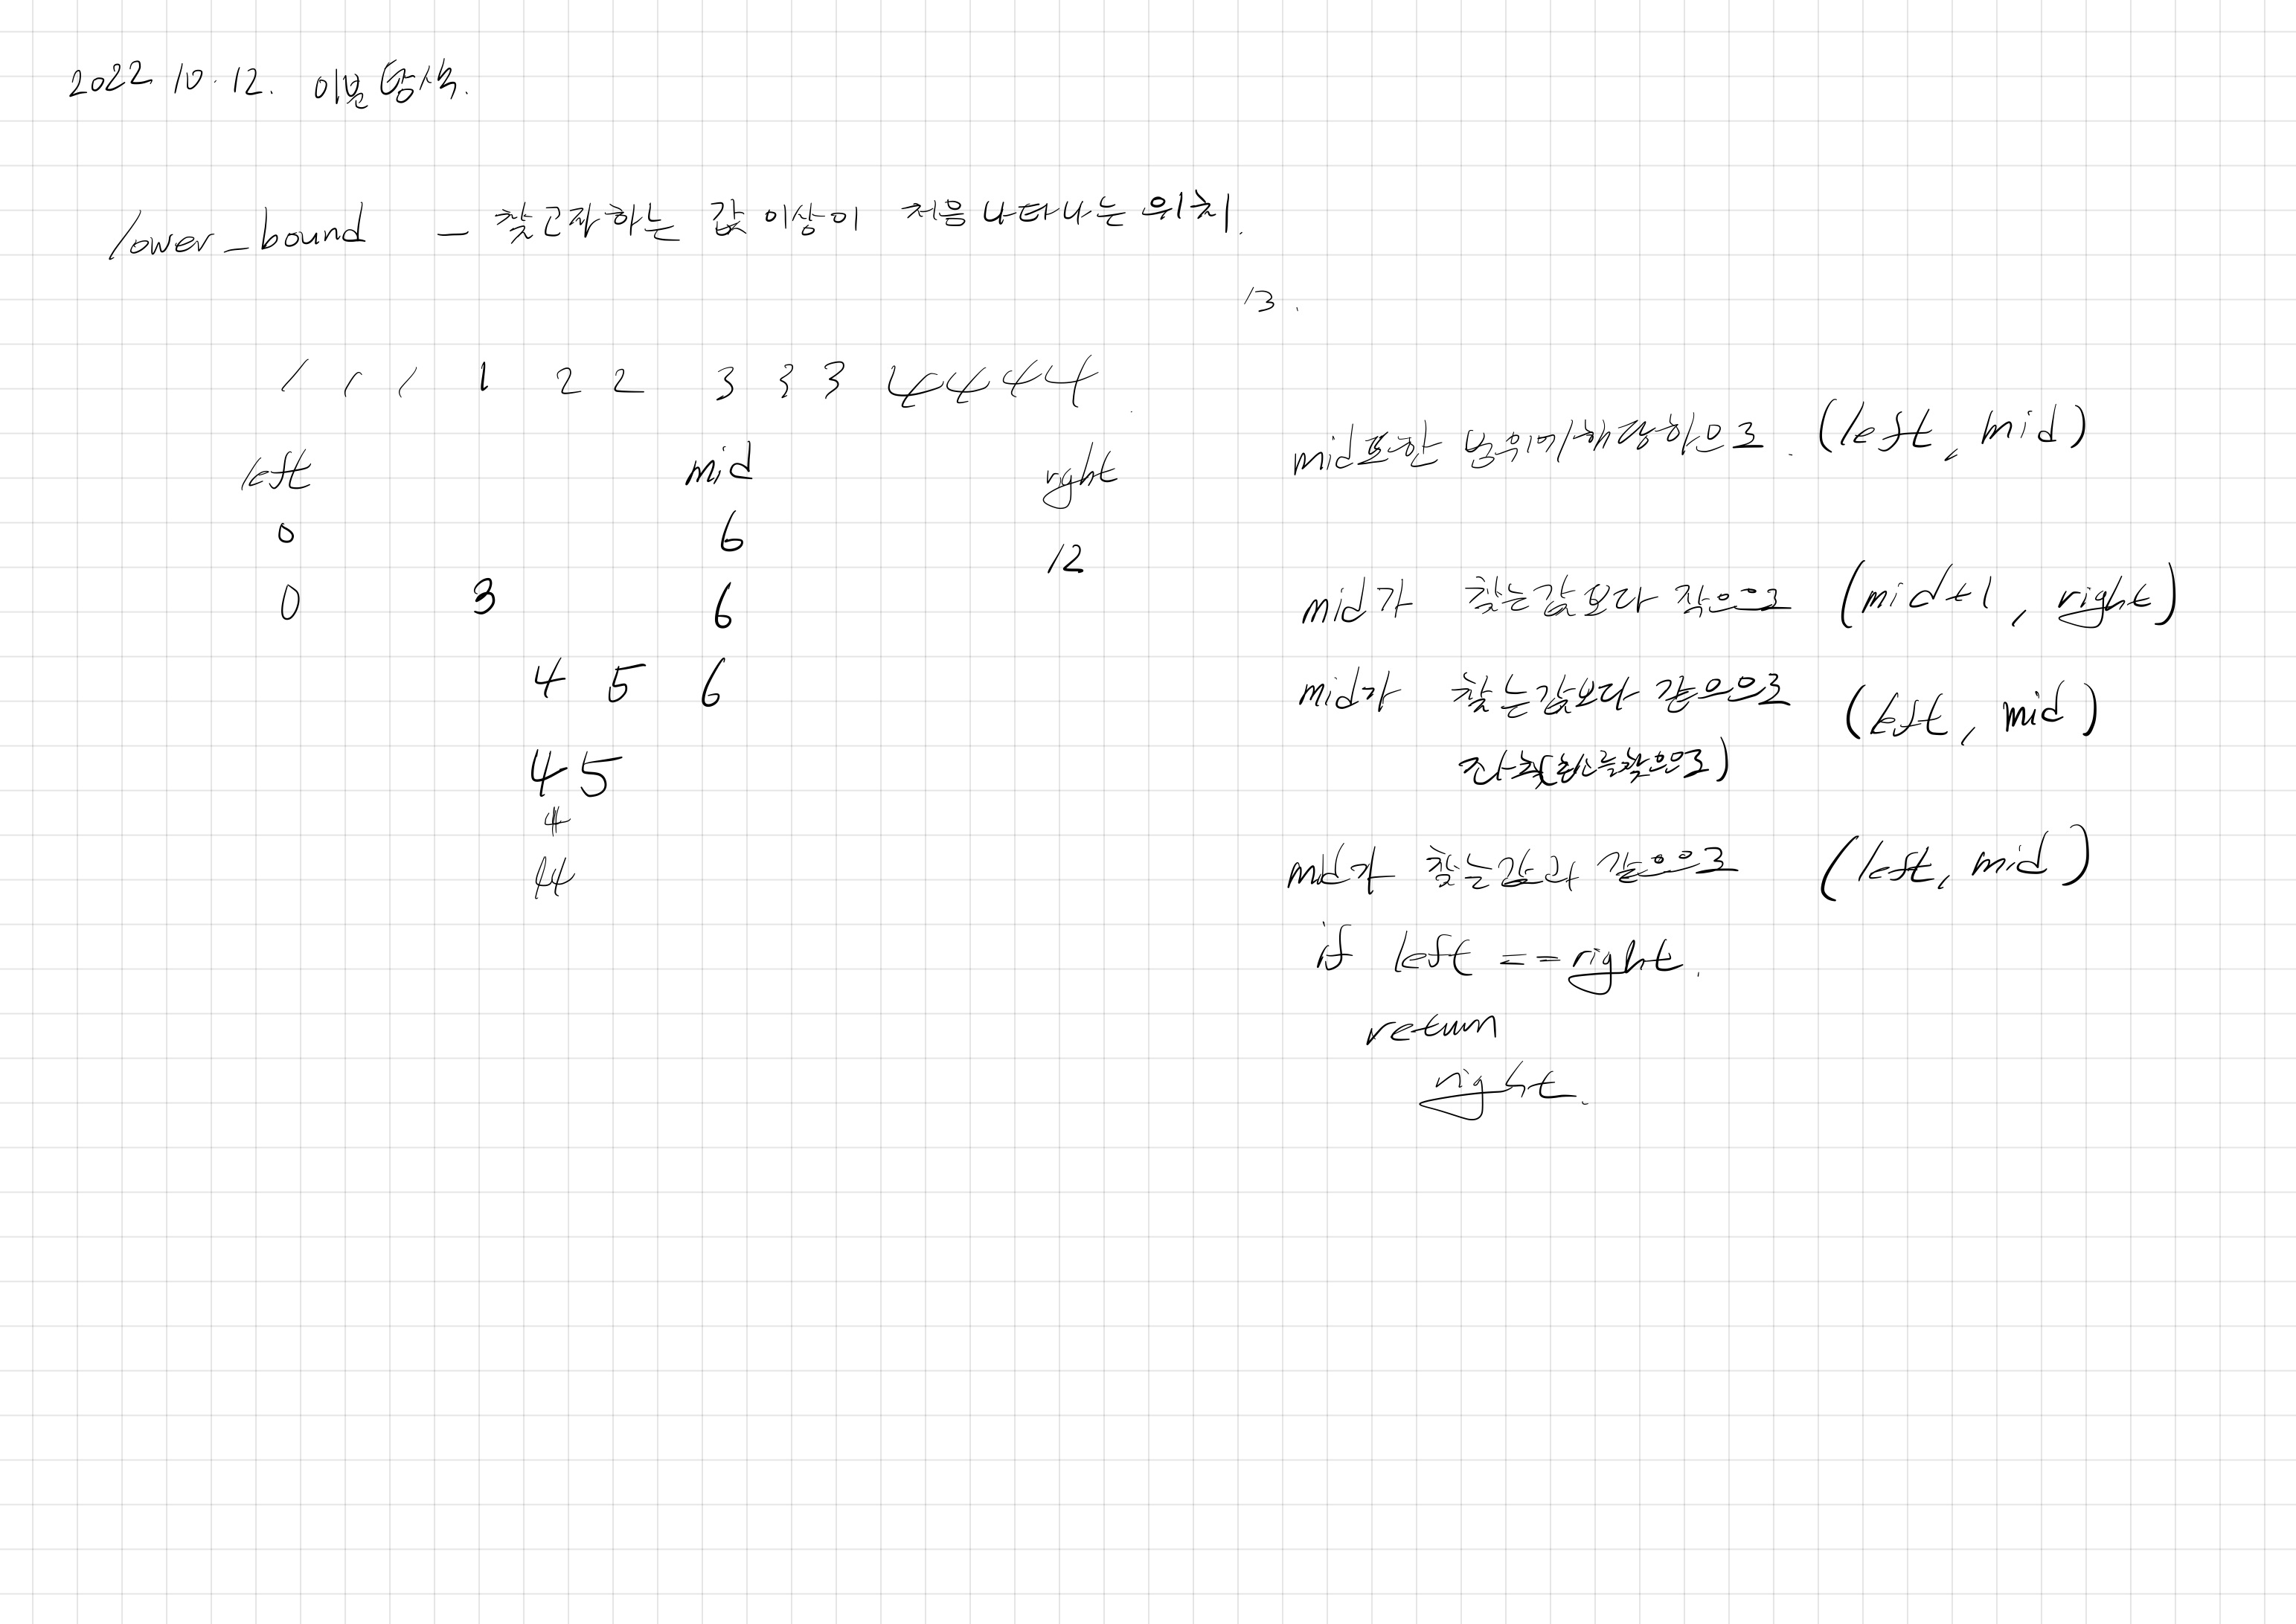 2022 10.12. 이분탐색.
lower_bound - 찾고자하는 값 이상이 처음 나타나는 위치.
13.
1 1 1 1 2 2 3 3 3 4 4 4 4
left mid right
0 6 12
0 3 6
4 5 6
4 5
4
4 4
mid포함 범위에해당하므로. (left, mid)
mid가 찾는값보다 작으므로 (mid+1, right)
mid가 찾는값보다 같으므로 (left, mid)
좌측
mid가 찾는값과 같으므로 (left, mid)
if left == right.
return
right.